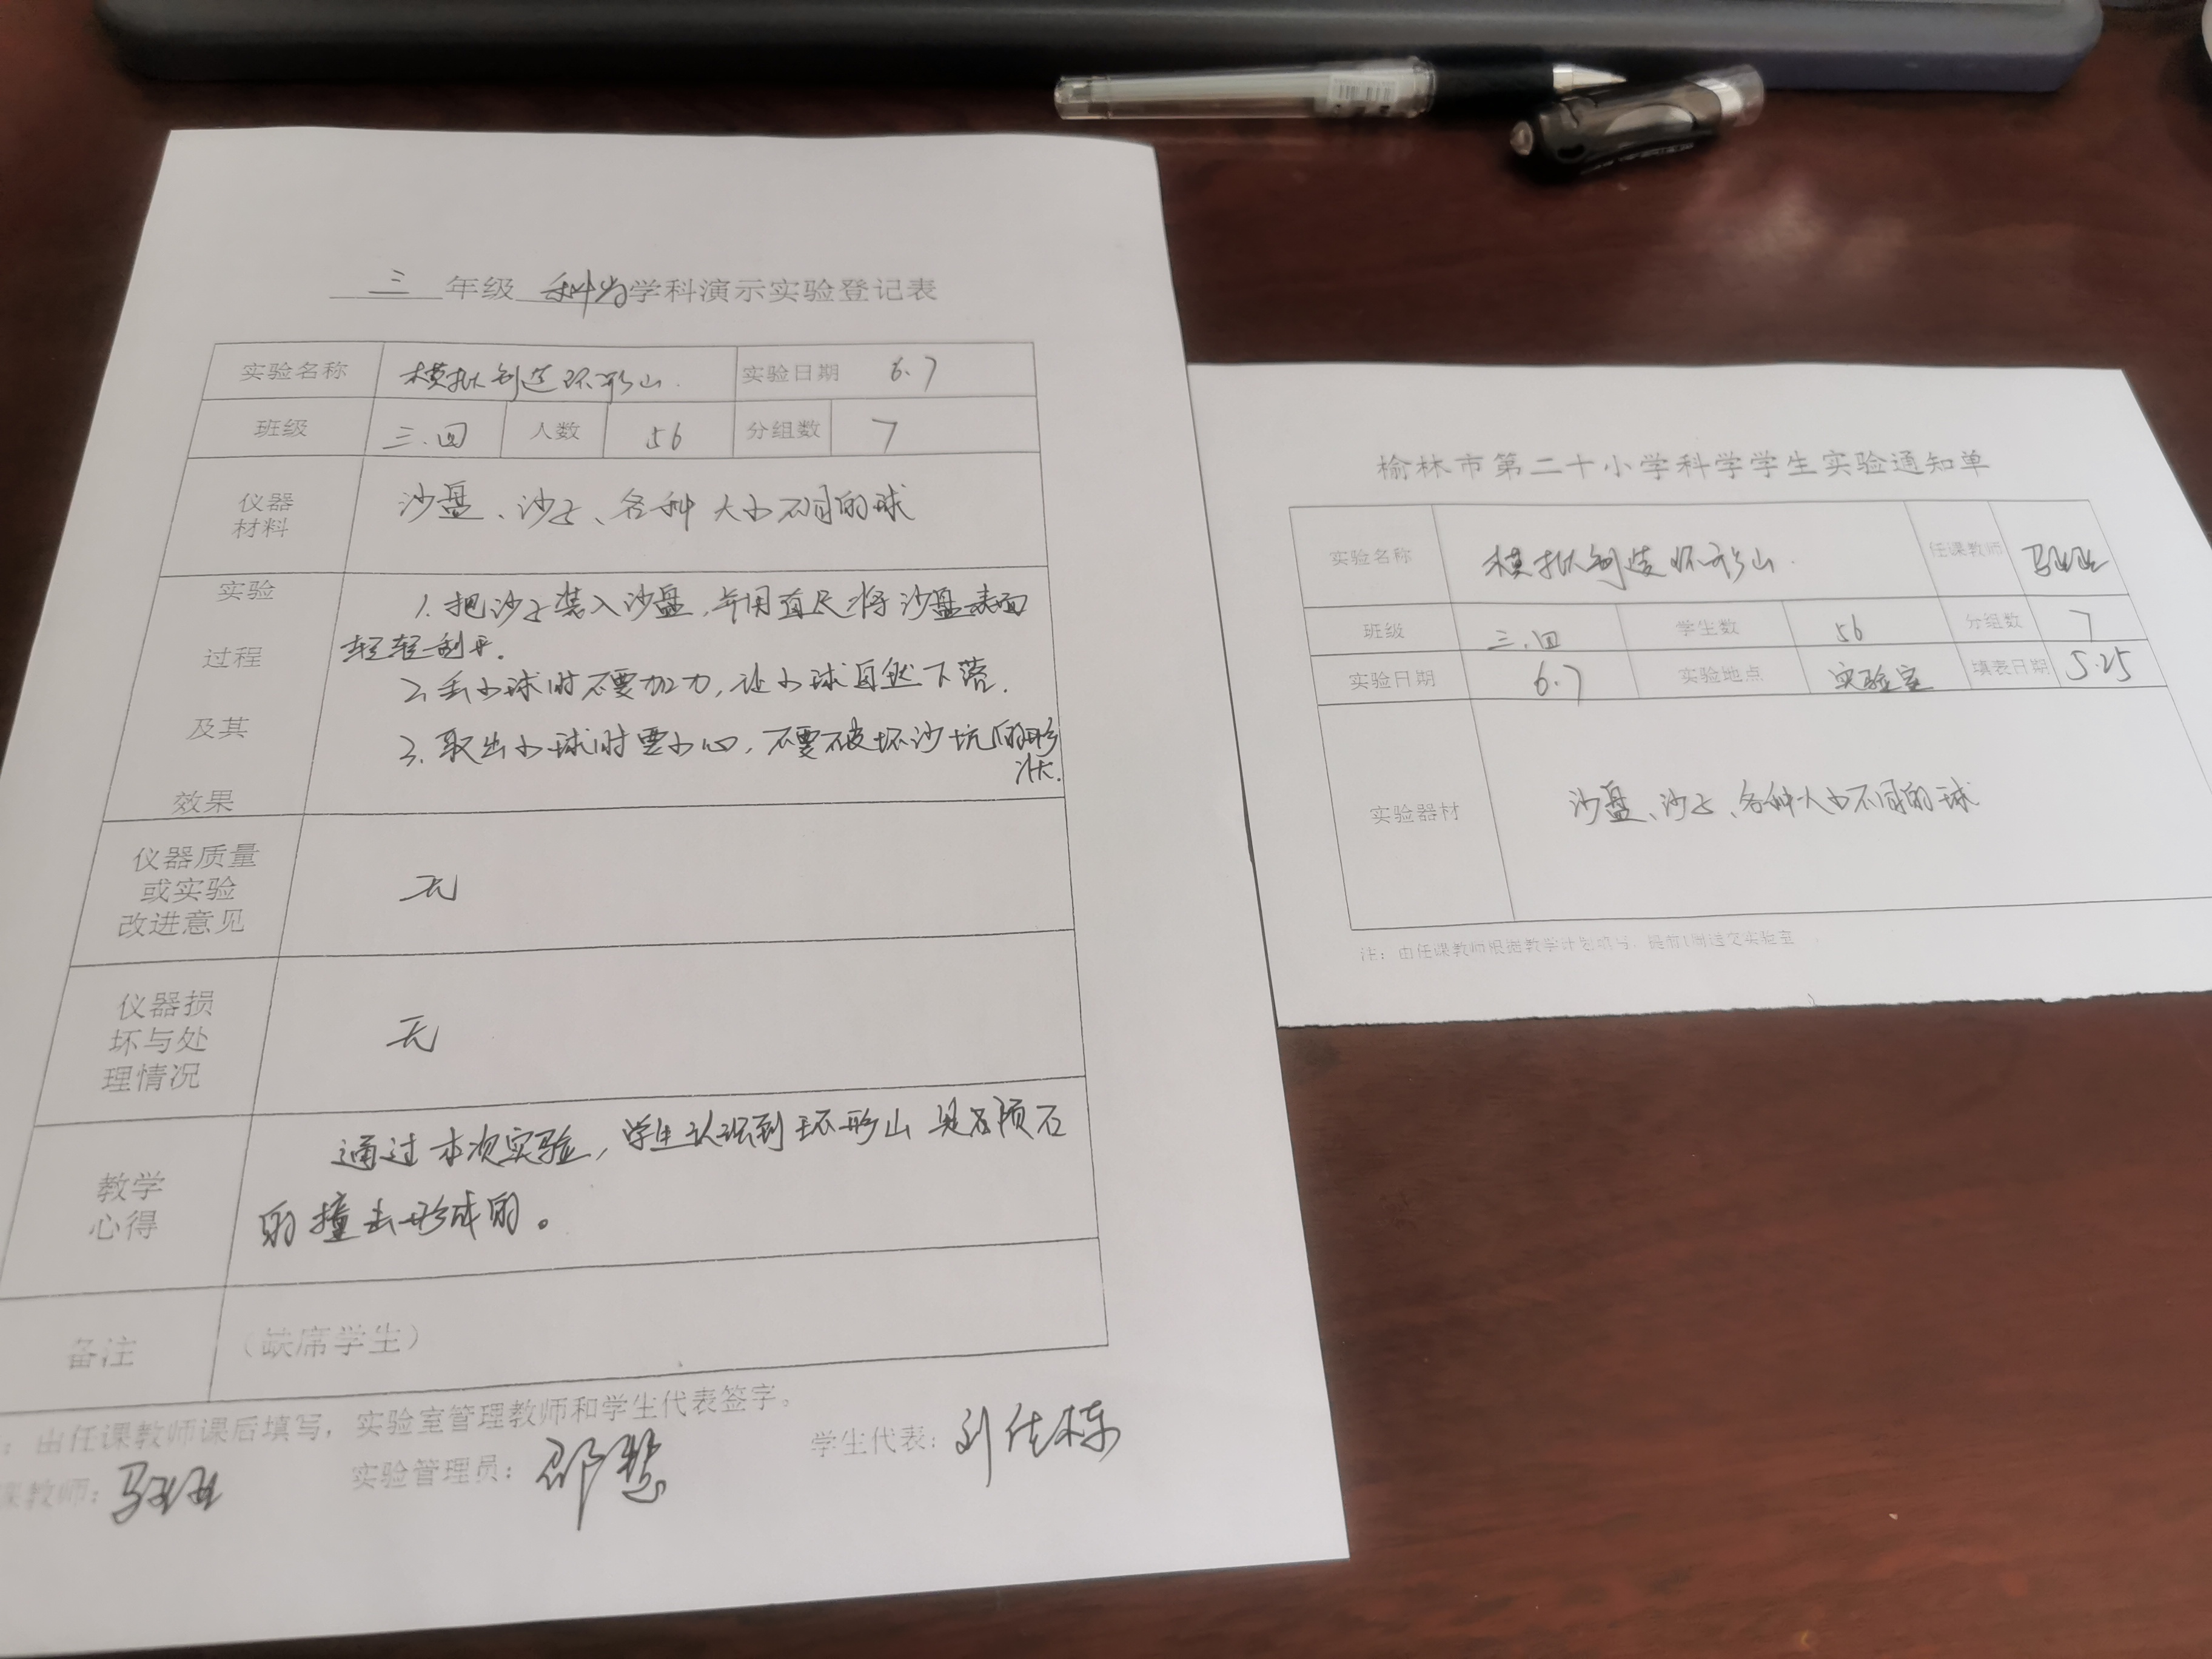 三 年级 科学 学科演示实验登记表
实验名称 模拟制造环形山. 实验日期 6.7
班级 三.四 人数 56 分组数 7
仪器
材料
沙盘、沙子、各种大小不同的球
实验
过程
及其
效果
1. 把沙子装入沙盘,并用直尺将沙盘表面
轻轻刮平.
2. 丢小球时不要加力,让小球自然下落.
3. 取出小球时要小心,不要破坏沙坑的形
状.
仪器质量
或实验
改进意见
无
仪器损
坏与处
理情况
无
教学
心得
通过本次实验,学生认识到环形山是石陨石
的撞击形成的。
备注 (缺席学生)
:由任课教师课后填写,实验室管理教师和学生代表签字。
课教师: 实验管理员:邵慧 学生代表:刘佳栋
榆林市第二十小学科学学生实验通知单
实验名称 模拟制造环形山. 任课教师
班级 三.四 学生数 56 分组数 7
实验日期 6.7 实验地点 实验室 填表日期 5.25
实验器材 沙盘、沙子、各种大小不同的球
注:由任课教师根据教学计划填写,提前1周送交实验室